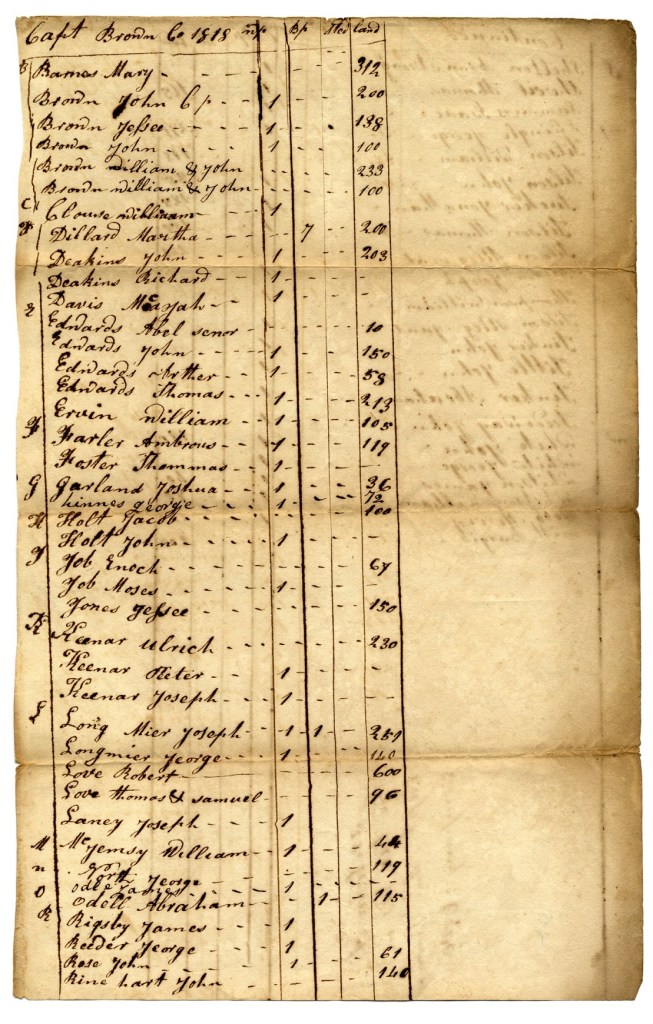 Capt Brown Co 1818 wp Bp Stod Land
B Barnes Mary - - - - - 312
Brown John C p - - 1 - - - 200
Brown Jessee - - - - 1 - - 138
Brown John - - - - 1 - - - 100
Brown william & John - - - - 233
Brown william & John - - - - 100
C Clouse william - - 1 - - -
D Dillard Martha - - - 7 - - 200
Deakins John - - - 1 - - - 203
Deakins Richard - - 1 - - - -
Davis - - 1 - - -
E Edwards Abel senor - - - - - 10
Edwards John - - - - 1 - - - 150
Edwards Arther - - - 1 - - - 58
Edwards Thomas - - 1 - - - 213
Ervin william - - 1 - - - 105
F Farler Ambrous - - - 1 - - - 119
Foster Thommas - - 1 - - -
G Garland Joshua - - 1 - - - 36
hinnes george - - - 1 - - - 72
H Holt Jacob - - - - - - 100
Holt John - - - - - 1 - - -
J Job Enoch - - - - - - - 67
Job Moses - - - - 1 - - -
Jones Jessee - - - - - - 150
K Keenar Ulrich - - - - - - 230
Keenar Peter - - - 1 - - -
Keenar Joseph - - 1 - - -
L Long Mier Joseph - - 1 - 1 - - 251
Longmier George - - - 1 - - - 140
Love Robert - - - - - 600
Love thomas & samuel - - - - - 96
Laney Joseph - - - 1 - - -
M Mc William - - 1 - - - 44
n North George - - - - - - 119
O Odele James - - 1 - - -
Odell Abraham - - - - 1 - - 115
R Rigsby James - - - 1 - - -
Reeder George - - - 1 - - - 61
Rose John - - - - 1 - - - 140
Rine hart John - - - - -